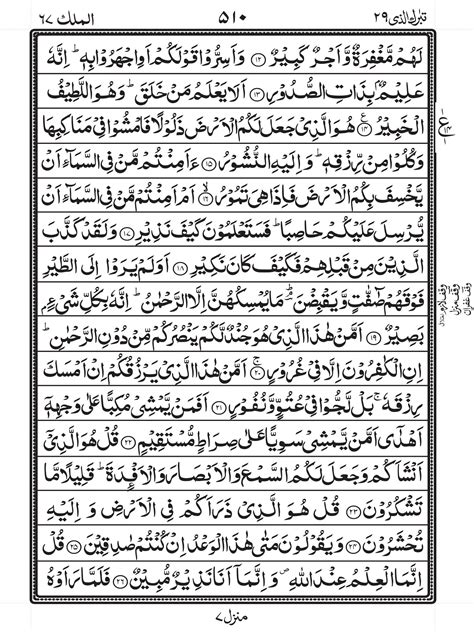 تبٰرك الذی ٢٩ ٥١٠ الملك ٦٧
لَهُمْ مَّغْفِرَةٌ وَّاَجْرٌ كَبِيْرٌ ﴿١٢﴾ وَاَسِرُّوْا قَوْلَكُمْ اَوِ اجْهَرُوْا بِهٖ ؕ اِنَّهٗ
عَلِيْمٌۢ بِذَاتِ الصُّدُوْرِ ﴿١٣﴾ اَلَا يَعْلَمُ مَنْ خَلَقَ ؕ وَهُوَ اللَّطِيْفُ
الْخَبِيْرُ ﴿١٤﴾ هُوَ الَّذِيْ جَعَلَ لَكُمُ الْاَرْضَ ذَلُوْلًا فَامْشُوْا فِيْ مَنَاكِبِهَا
وَكُلُوْا مِنْ رِّزْقِهٖ ؕ وَاِلَيْهِ النُّشُوْرُ ﴿١٥﴾ ءَاَمِنْتُمْ مَّنْ فِي السَّمَآءِ اَنْ
يَّخْسِفَ بِكُمُ الْاَرْضَ فَاِذَا هِيَ تَمُوْرُ ﴿١٦﴾ اَمْ اَمِنْتُمْ مَّنْ فِي السَّمَآءِ اَنْ
يُّرْسِلَ عَلَيْكُمْ حَاصِبًا ؕ فَسَتَعْلَمُوْنَ كَيْفَ نَذِيْرِ ﴿١٧﴾ وَلَقَدْ كَذَّبَ
الَّذِيْنَ مِنْ قَبْلِهِمْ فَكَيْفَ كَانَ نَكِيْرِ ﴿١٨﴾ اَوَلَمْ يَرَوْا اِلَى الطَّيْرِ
فَوْقَهُمْ صٰٓفّٰتٍ وَّيَقْبِضْنَ ؔۘ مَا يُمْسِكُهُنَّ اِلَّا الرَّحْمٰنُ ؕ اِنَّهٗ بِكُلِّ شَيْءٍۭ
بَصِيْرٌ ﴿١٩﴾ اَمَّنْ هٰذَا الَّذِيْ هُوَ جُنْدٌ لَّكُمْ يَنْصُرُكُمْ مِّنْ دُوْنِ الرَّحْمٰنِ ؕ
اِنِ الْكٰفِرُوْنَ اِلَّا فِيْ غُرُوْرٍ ﴿٢٠﴾ اَمَّنْ هٰذَا الَّذِيْ يَرْزُقُكُمْ اِنْ اَمْسَكَ
رِزْقَهٗ ۚ بَلْ لَّجُّوْا فِيْ عُتُوٍّ وَّنُفُوْرٍ ﴿٢١﴾ اَفَمَنْ يَّمْشِيْ مُكِبًّا عَلٰى وَجْهِهٖٓ
اَهْدٰٓى اَمَّنْ يَّمْشِيْ سَوِيًّا عَلٰى صِرَاطٍ مُّسْتَقِيْمٍ ﴿٢٢﴾ قُلْ هُوَ الَّذِيْٓ
اَنْشَاَكُمْ وَجَعَلَ لَكُمُ السَّمْعَ وَالْاَبْصَارَ وَالْاَفْـِٕدَةَ ؕ قَلِيْلًا مَّا
تَشْكُرُوْنَ ﴿٢٣﴾ قُلْ هُوَ الَّذِيْ ذَرَاَكُمْ فِي الْاَرْضِ وَاِلَيْهِ
تُحْشَرُوْنَ ﴿٢٤﴾ وَيَقُوْلُوْنَ مَتٰى هٰذَا الْوَعْدُ اِنْ كُنْتُمْ صٰدِقِيْنَ ﴿٢٥﴾ قُلْ
اِنَّمَا الْعِلْمُ عِنْدَ اللّٰهِ ۪ وَاِنَّمَآ اَنَا نَذِيْرٌ مُّبِيْنٌ ﴿٢٦﴾ فَلَمَّا رَاَوْهُ
منزل ٧